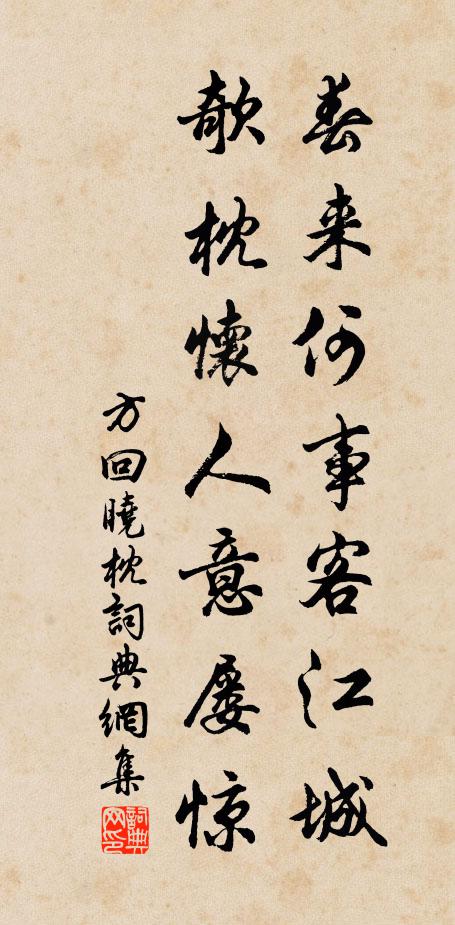 春来何事客江城
欹枕懷人意屡惊
方回曉枕詞典網集
詞典网印